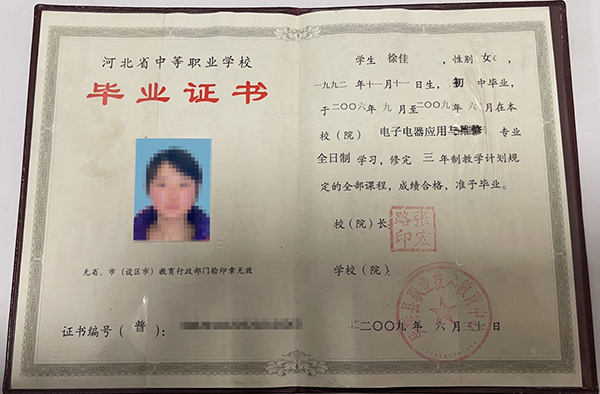 河北省中等职业学校
毕业证书
无省、市（设区市）教育行政部门验印章无效
证书编号（普）：
学生 徐佳 ，性别 女，
一九九二 年十一月十一日生， 初 中毕业，
于二〇〇六年 九 月至二〇〇九年 六 月在本
校（院） 电子电器应用与维修 专业
全日制 学习，修完 三 年制教学计划规
定的全部课程，成绩合格，准予毕业。
校（院）长
张宏路印
学校（院）
县职业技术教育中心
二〇〇九 年 六 月三十日